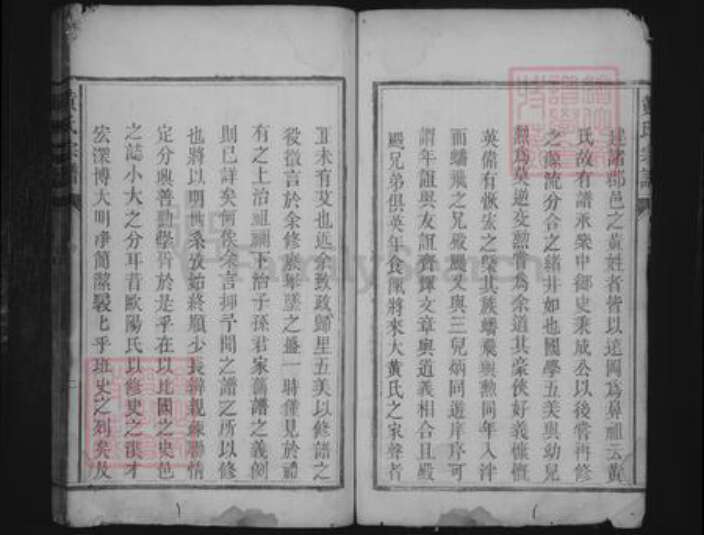 達諸郡邑之黃姓者皆以遠國為鼻祖云黃
氏故有譜承樂中御史秉成公以後嘗再修
之源流分合之緒井如也國學五美與幼兒
勲為莫逆交勲嘗為余道其豪俠好義慷慨
英偉有恢宏之槩其族蟠飛與勲同年入泮
而蟠飛之兄殿颺又與三兒炳同遊庠序可
謂年誼與友誼齊輝文章與道義相合且殿
颺兄弟俱英年食餼將來大黃氏之家聲者
正未有艾也近余致政歸里五美以修譜之
役徵言於余修族舉墜之盛一時僅見於禮
有之上治祖禰下治子孫君家舊譜之義例
則已詳矣何俟余言抑予聞之譜之所以修
也將以明世系攷始終順少長辨親疎聯情
定分與善勸學胥於是乎在以比國之史邑
之誌小大之分耳昔歐陽氏以修史之漢才
宏深博大明淨簡潔駸駸乎班史之列矣及
黃氏宗譜
黃氏宗譜
FamilySearch